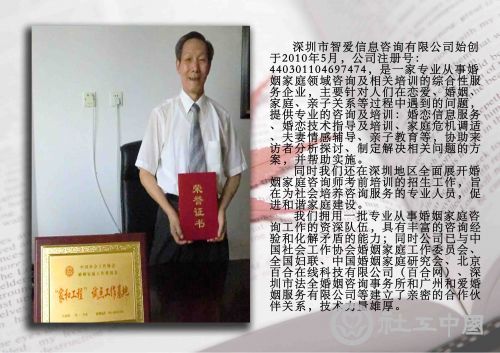 深圳市智爱信息咨询有限公司始创
于2010年5月，公司注册号：
440301104697474，是一家专业从事婚
姻家庭领域咨询及相关培训的综合性服
务企业，主要针对人们在恋爱、婚姻、
家庭、亲子关系等过程中遇到的问题，
提供专业的咨询及培训：婚恋信息服务
、婚恋技术指导及培训、家庭危机调适
、夫妻情感辅导、亲子教育等，协助来
访者分析探讨、制定解决相关问题的方
案，并帮助实施。
同时我们还在深圳地区全面展开婚
姻家庭咨询师考前培训的招生工作，旨
在为社会培养咨询服务的专业人员，促
进和谐家庭建设。
我们拥用一批专业从事婚姻家庭咨
询工作的资深队伍，具有丰富的咨询经
验和化解矛盾的能力；同时公司已与中
国社会工作协会婚姻家庭工作委员会、
全国妇联、中国婚姻家庭研究会、北京
百合在线科技有限公司（百合网）、深
圳市法全婚姻咨询事务所和广州和爱婚
姻服务有限公司等建立了亲密的合作伙
伴关系，技术力量雄厚。
荣誉证书
"家和工程"试点工作基地
社工中國